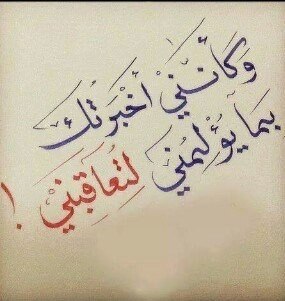 وَكأنَّني أخبَرتُك
بِمَا يُؤلِمُني لتُعاقِبَني !